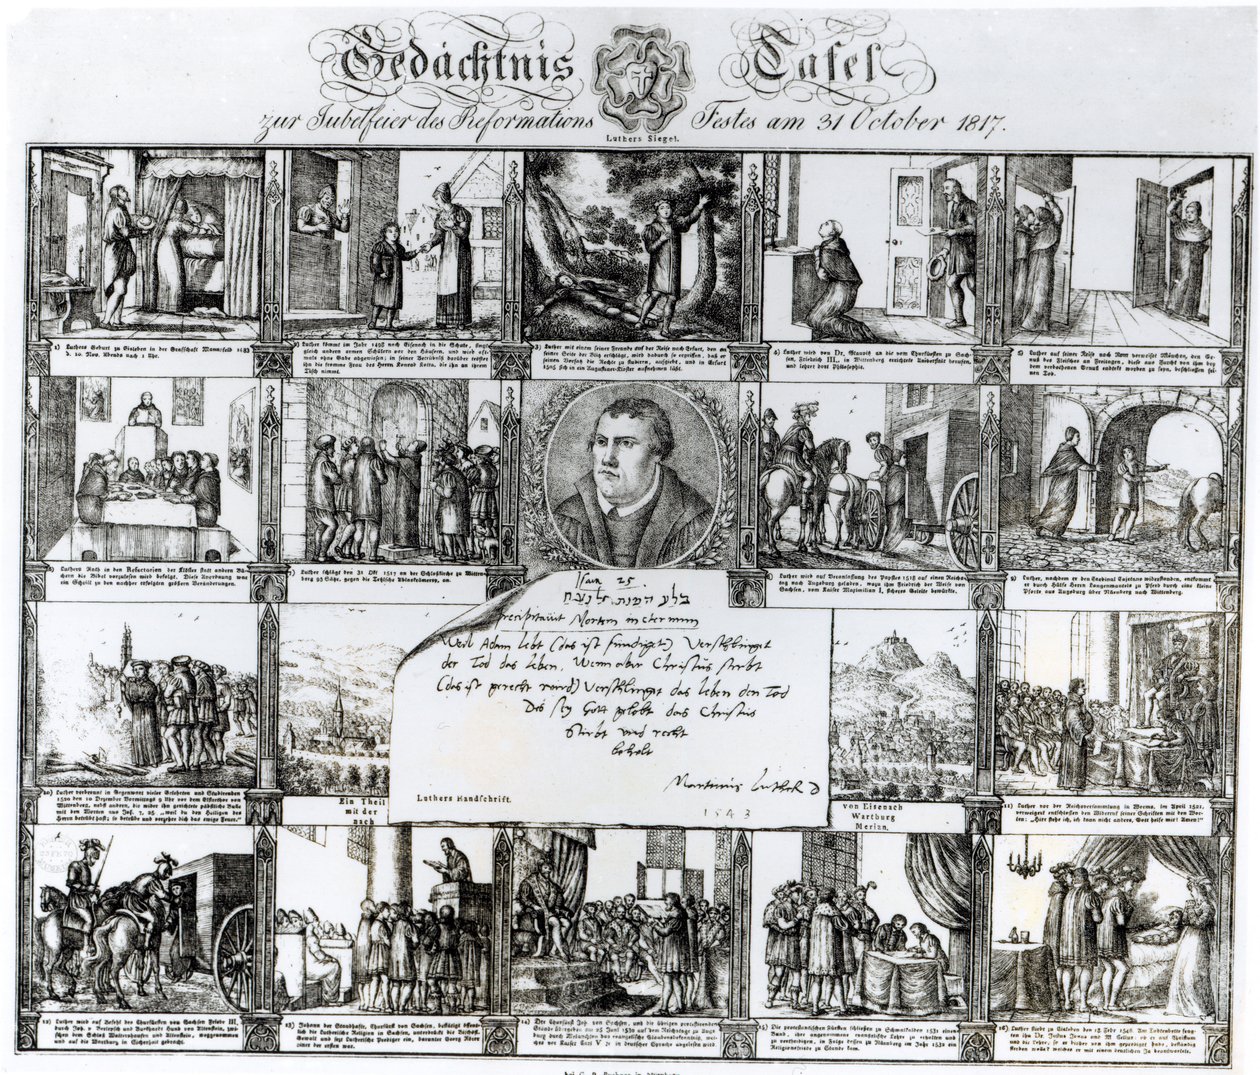 Gedächtnis Tafel
zur Jubelfeier des Reformations Festes am 31 October 1817.
Luthers Siegel.
1) Luthers Geburt zu Eisleben in der Grafschaft Mannsfeld 1483
d. 10. Nov. Abends nach 11 Uhr.
2) Luther kommt im Jahr 1498 nach Eisenach in die Schule, singt
gleich andern armen Schülern vor den Häusern, und wird oft
ohne Gabe abgewiesen; in seiner Betrübniß darüber tröstet
ihn die fromme Frau des Herrn Konrad Kotta, die ihn an ihrem
Tisch nimmt.
3) Luther mit einem seiner Freunde auf der Reise nach Erfurt, den an
seiner Seite der Blitz erschlägt, wird dadurch so ergriffen, daß er
seinen Vorsatz die Rechte zu studieren, aufgiebt, und in Erfurt
1505 sich in ein Augustiner-Kloster aufnehmen läßt.
4) Luther wird von Dr. Staupitz an die vom Churfürsten zu Sach-
sen, Friedrich III., in Wittenberg errichtete Universität berufen,
und lehret dort Philosophie.
5) Luther auf seiner Reise nach Rom verweiset Mönchen, den Ge-
nuß des Fleisches an Freitagen; diese aus Furcht von ihm den
verbothenen Genuß entdeckt worden zu seyn, beschließen sei-
nen Tod.
6) Luthers Rath in den Refectorien der Klöster statt andern Bü-
chern die Bibel vorzulesen wird befolgt. Diese Anordnung war
ein Schritt zu den nachher erfolgten größern Veränderungen.
7) Luther schlägt den 31 Okt 1517 an der Schloßkirche zu Witten-
berg 95 Sätze, gegen die Tetzlische Ablaßkrämerey, an.
8) Luther wird auf Veranlassung des Papstes 1518 auf einen Reichs-
tag nach Augsburg geladen, wozu ihm Friedrich der Weise von
Sachsen, vom Kaiser Maximilian I, sicheres Geleite bewürkte.
9) Luther, nachdem er den Cardinal Cajetans widerstanden, entkommt
er durch Hülfe Herrn Langenmantels zu Pferd durch eine kleine
Pforte aus Augsburg über Nürnberg nach Wittenberg.
Isaia 25
בלע המות לנצח
Precipitavit Mortem in eternum
Weil Adam lebt (das ist sundiget) Verschlingt
der Tod das leben. Wenn aber Christus stirbt
(das ist gerecht wird) Verschlingt das leben den Tod
Des sey Gott gelobt das Christus
stirbt und recht
behelt
Martinus Luther D
1543
Luthers Handschrift.
10) Luther verbrennt in Gegenwart vieler Gelehrten und Studirenden
1520 den 10 Dezember Vormittags 9 Uhr vor dem Elsterthor von
Wittenberg, nebst andern, die wider ihn gerichtete päbstliche Bulle
mit den Worten aus Jos. 7, 25. „weil du den Heiligen des
Herrn betrübt hast; so betrübe und verzehre dich das ewige Feuer."
Ein Theil
mit der
nach
von Eisenach
Wartburg
Merian.
11) Luther vor der Reichsversammlung in Worms, im April 1521,
verweigert entschlossen den Widerruf seiner Schriften mit den Wor-
ten: „Hier stehe ich, ich kann nicht anders, Gott helfe mir! Amen!"
12) Luther wird auf Befehl des Churfürsten von Sachsen Friedr III,
durch Joh. v Berlepsch und Burkhardt Hund von Altenstein, zwi-
schen dem Schloß Waltershausen und Altenstein, weggenommen
und auf die Wartburg in Sicherheit gebracht.
13) Johann der Standhafte, Churfürst von Sachsen, bestätigt öffent-
lich die Lutherische Religion in Sachsen, unterdrückt die Bischöfl.
Gewalt und setzt Lutherische Prediger ein, darunter Georg Rörer
einer der ersten war.
14) Der Churfürst Joh. von Sachsen, und die übrigen protestirenden
Stände übergeben am 25 Juni 1530 auf dem Reichstage zu Augs-
burg durch Melanchton das evangelische Glaubensbekenntniß, wel-
ches vor Kaiser Carl V in deutscher Sprache abgelesen wird.
15) Die protestantischen Fürsten schließen zu Schmalkalden 1531 einen
Bund, ihre angenommene evangelische Lehre zu erhalten und
zu vertheidigen, in Folge dessen zu Nürnberg im Jahr 1532 ein
Religionsfriede zu Stande kam.
16) Luther stirbt zu Eisleben den 18 Febr 1546. Am Todtenbette frag-
ten ihn Dr. Justus Jonas und M Celius: ob er auf Christum
und die Lehre, so er bisher von ihm geprediget habe, beständig
sterben wolle? welches er mit einem deutlichen Ja beantwortete.